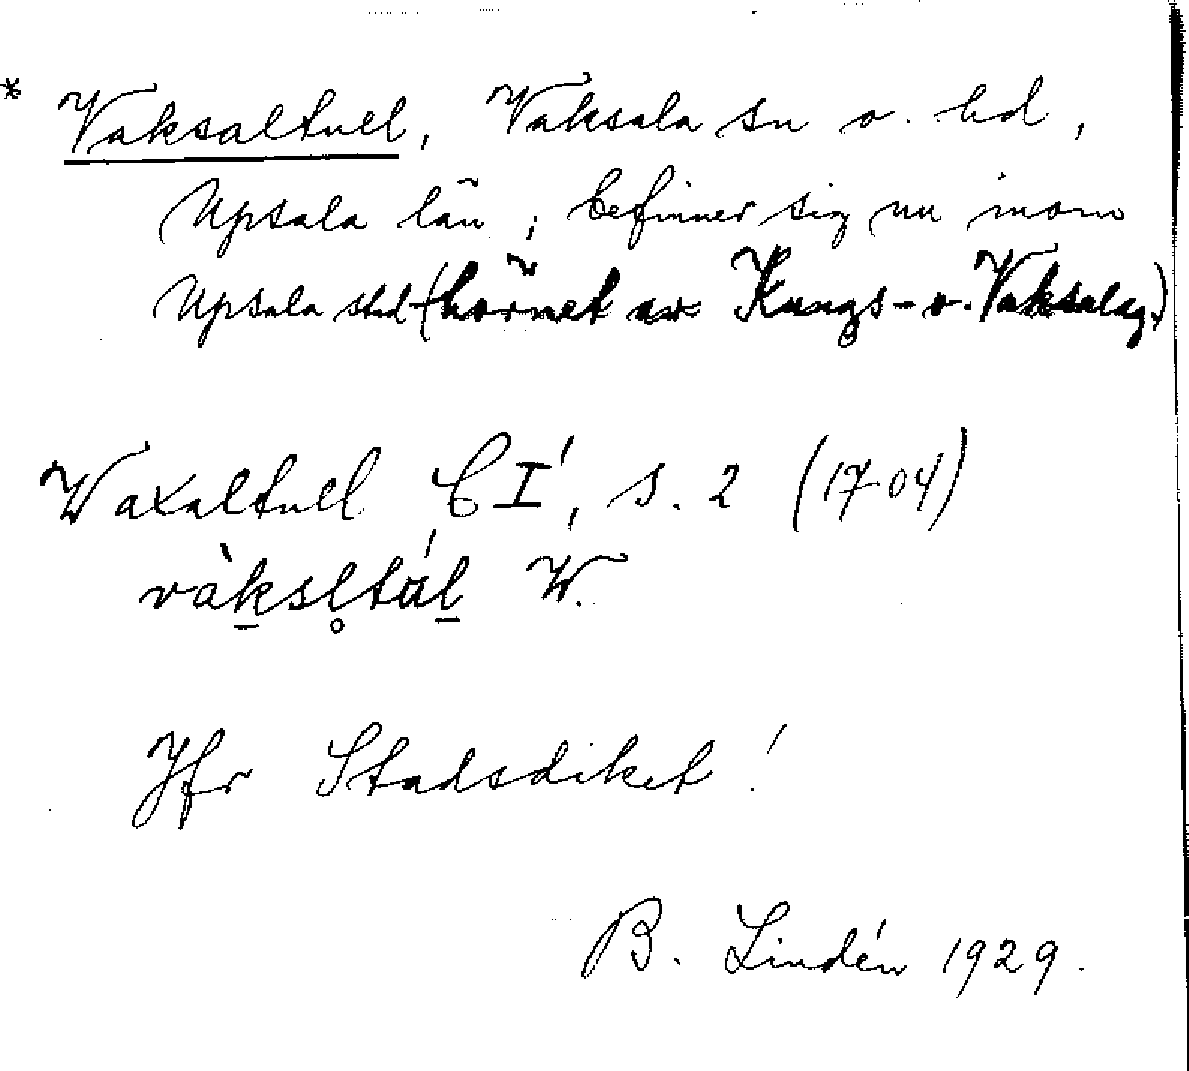 * Vaksaltull, Vaksala sn o. hd,
Upsala län; befinner sig nu inom
Upsala stad (hörnet av Kungs- o. Vaksalag.)
Waxaltull C I', s. 2 (1704)
W.
Jfr Stadsdiket!
B. Lindén 1929.